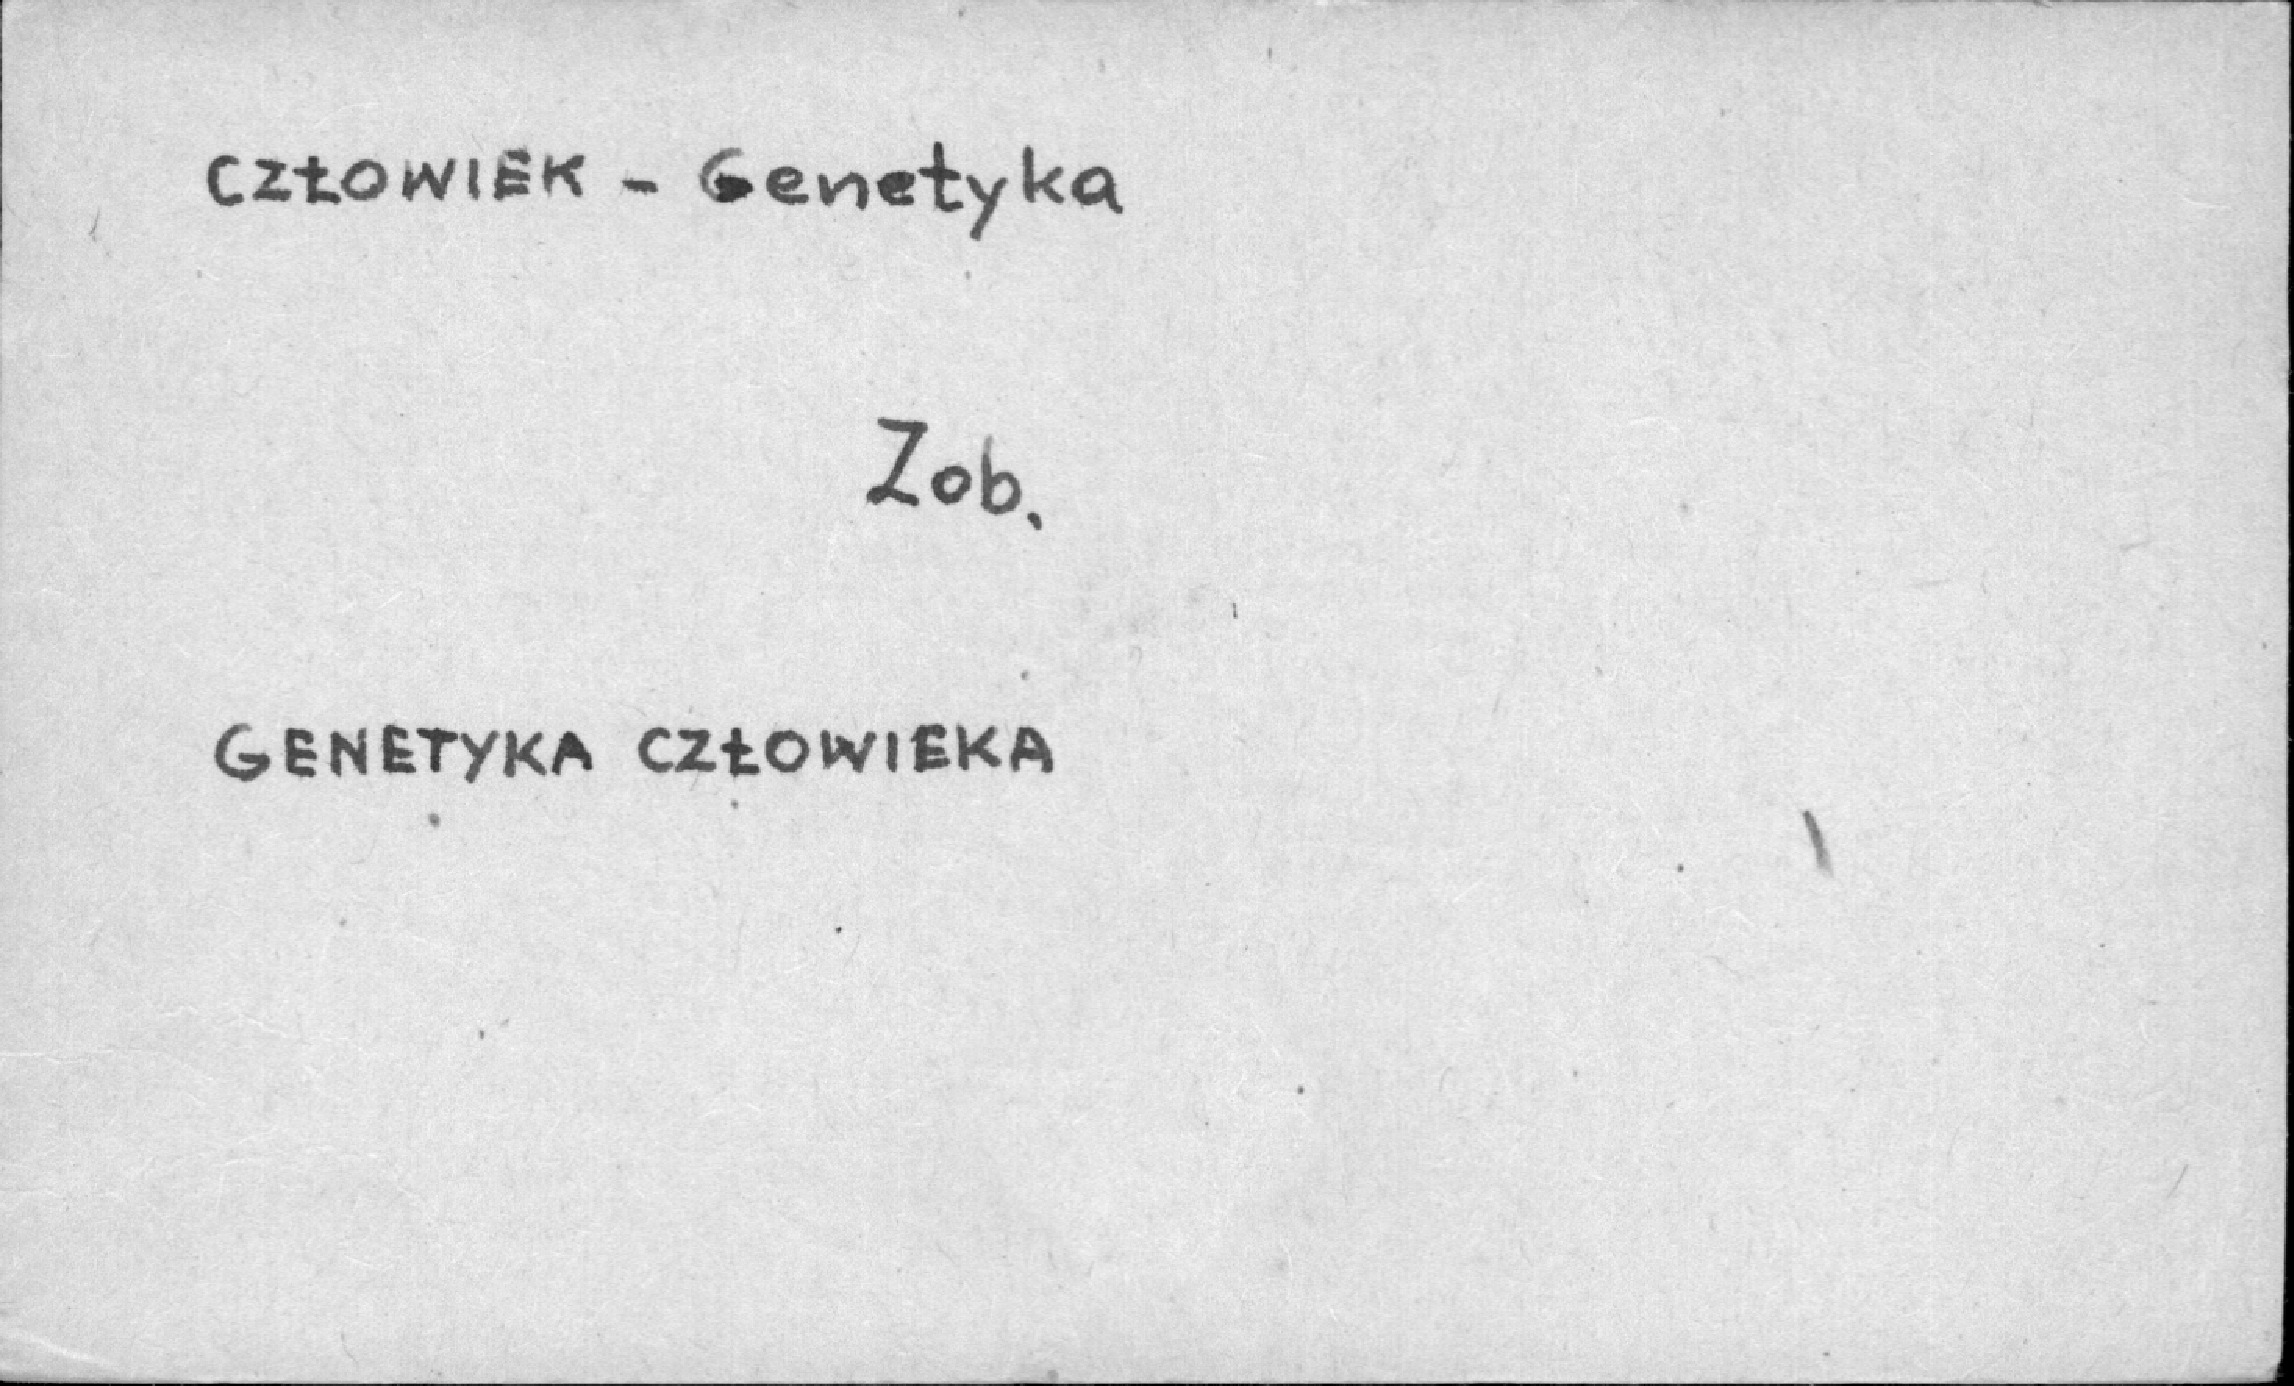 CZŁOWIEK - Genetyka
Zob.
GENETYKA CZŁOWIEKA